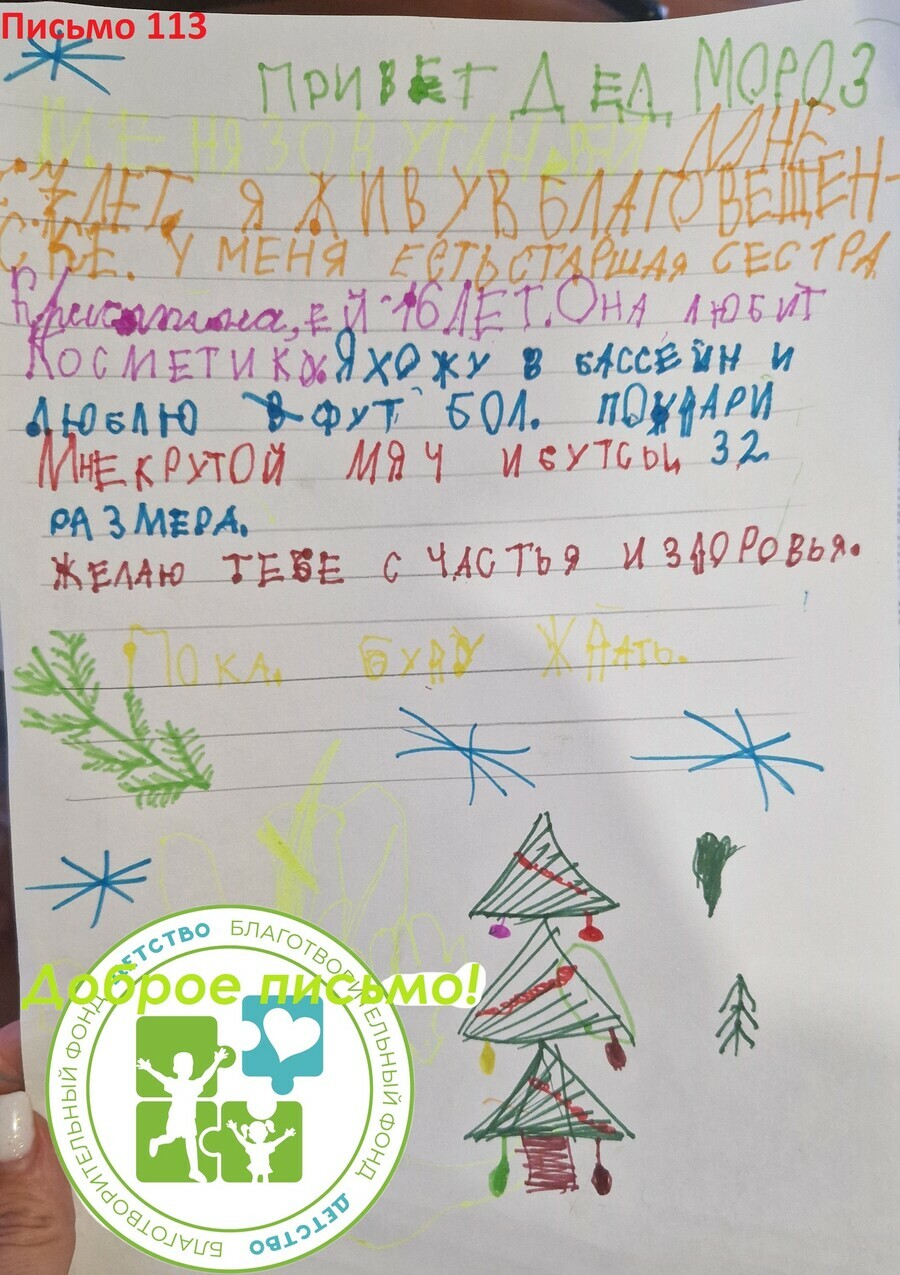 Письмо 113
ПРИВЕТ ДЕД МОРОЗ
МЕНЯ ЗОВУТ МНЕ
7 ЛЕТ. Я ЖИВУ В БЛАГОВЕЩЕН-
СКЕ. У МЕНЯ ЕСТЬ СТАРШАЯ СЕСТРА
Кристина, ЕЙ 16 ЛЕТ. ОНА ЛЮБИТ
КОСМЕТИКУ. Я ХОЖУ В БАССЕЙН И
ЛЮБЛЮ ФУТ БОЛ. ПОДАРИ
МНЕ КРУТОЙ МЯЧ И БУТСЫ 32
РАЗМЕРА.
ЖЕЛАЮ ТЕБЕ СЧАСТЬЯ И ЗДОРОВЬЯ.
ПОКА. БУДУ ЖДАТЬ.
Доброе письмо!
БЛАГОТВОРИТЕЛЬНЫЙ ФОНД ДЕТСТВО
БЛАГОТВОРИТЕЛЬНЫЙ ФОНД ДЕТСТВО